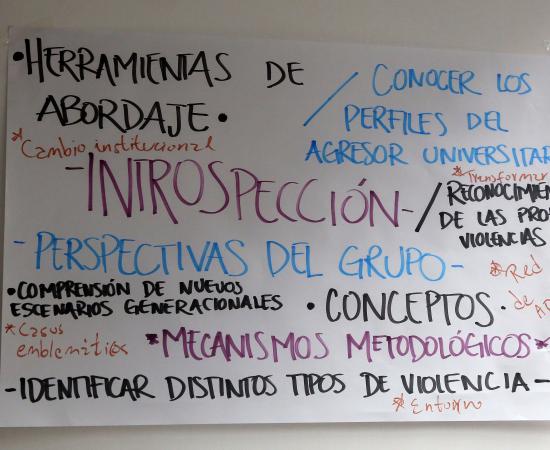 •HERRAMIENTAS DE
ABORDAJE•
* Cambio institucional
/ CONOCER LOS
PERFILES DEL
AGRESOR UNIVERSITAR
* Transformar
-INTROSPECCIÓN-
/ RECONOCIMIEN
DE LAS PRO
VIOLENCIAS
- PERSPECTIVAS DEL GRUPO-
* Red
de
•COMPRENSIÓN DE NUEVOS
ESCENARIOS GENERACIONALES
• CONCEPTOS.
* Casos
emblemáticos
*MECANISMOS METODOLÓGICOS*
-IDENTIFICAR DISTINTOS TIPOS DE VIOLENCIA-
* Entorno